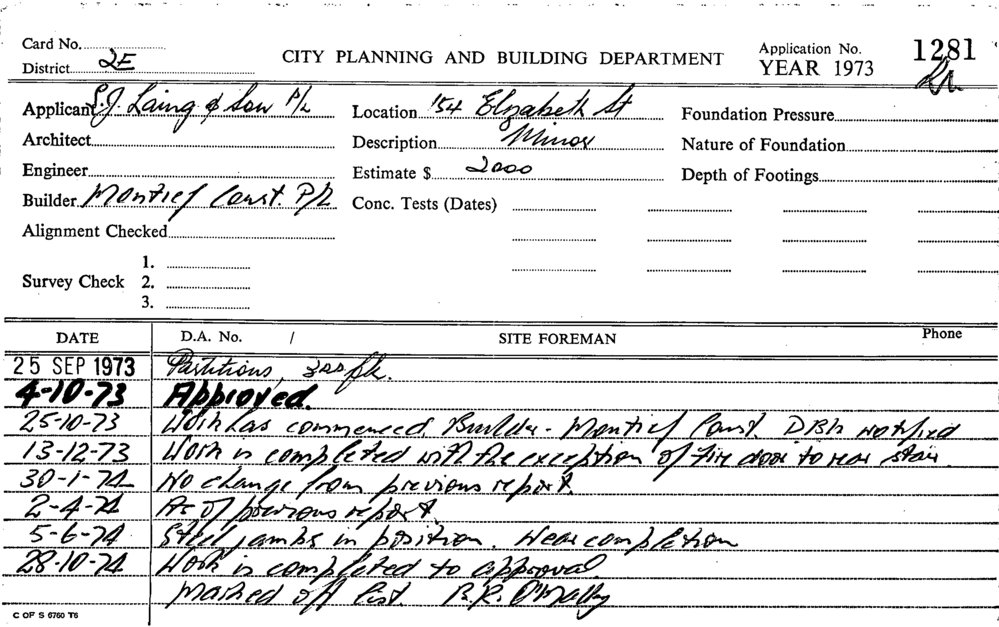 Card No.
District 2E
CITY PLANNING AND BUILDING DEPARTMENT
Application No. 1281
YEAR 1973
Applicant S.J. Laing & Son P/L
Location 154 Elizabeth St
Foundation Pressure
Architect
Description Minor
Nature of Foundation
Engineer
Estimate $ 2000
Depth of Footings
Builder Montief Const. P/L
Conc. Tests (Dates)
Alignment Checked
Survey Check 1.
2.
3.
DATE D.A. No. / SITE FOREMAN Phone
25 SEP 1973 Partitions, 3rd flr.
4-10-73 Approved.
25-10-73 Work has commenced. Builder - Montief Const. DBI notified
13-12-73 Work is completed with the exception of fire door to rear stair.
30-1-74 No change from previous report.
2-4-74 As of previous report.
5-6-74 Steel jambs in position. Near completion
28-10-74 Work is completed to approval
Marked off list. B.R. O'Malley
C OF S 6760 T6